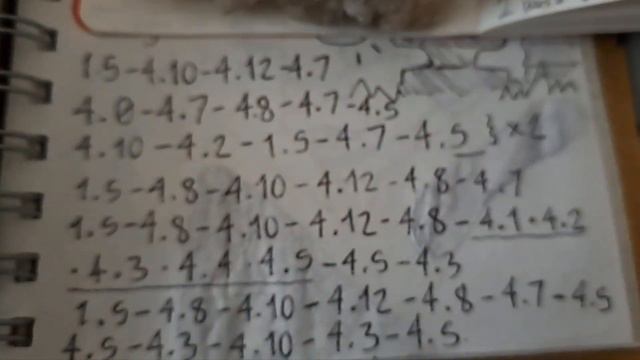 1.5-4.10-4.12-4.7
4.0-4.7-4.8-4.7-4.5
4.10-4.2-1.5-4.7-4.5 } x2
1.5-4.8-4.10-4.12-4.8-4.7
1.5-4.8-4.10-4.12-4.8-4.1·4.2
·4.3·4.4 4.5-4.5-4.3
1.5-4.8-4.10-4.12-4.8-4.7-4.5
4.5-4.3-4.10-4.3-4.5